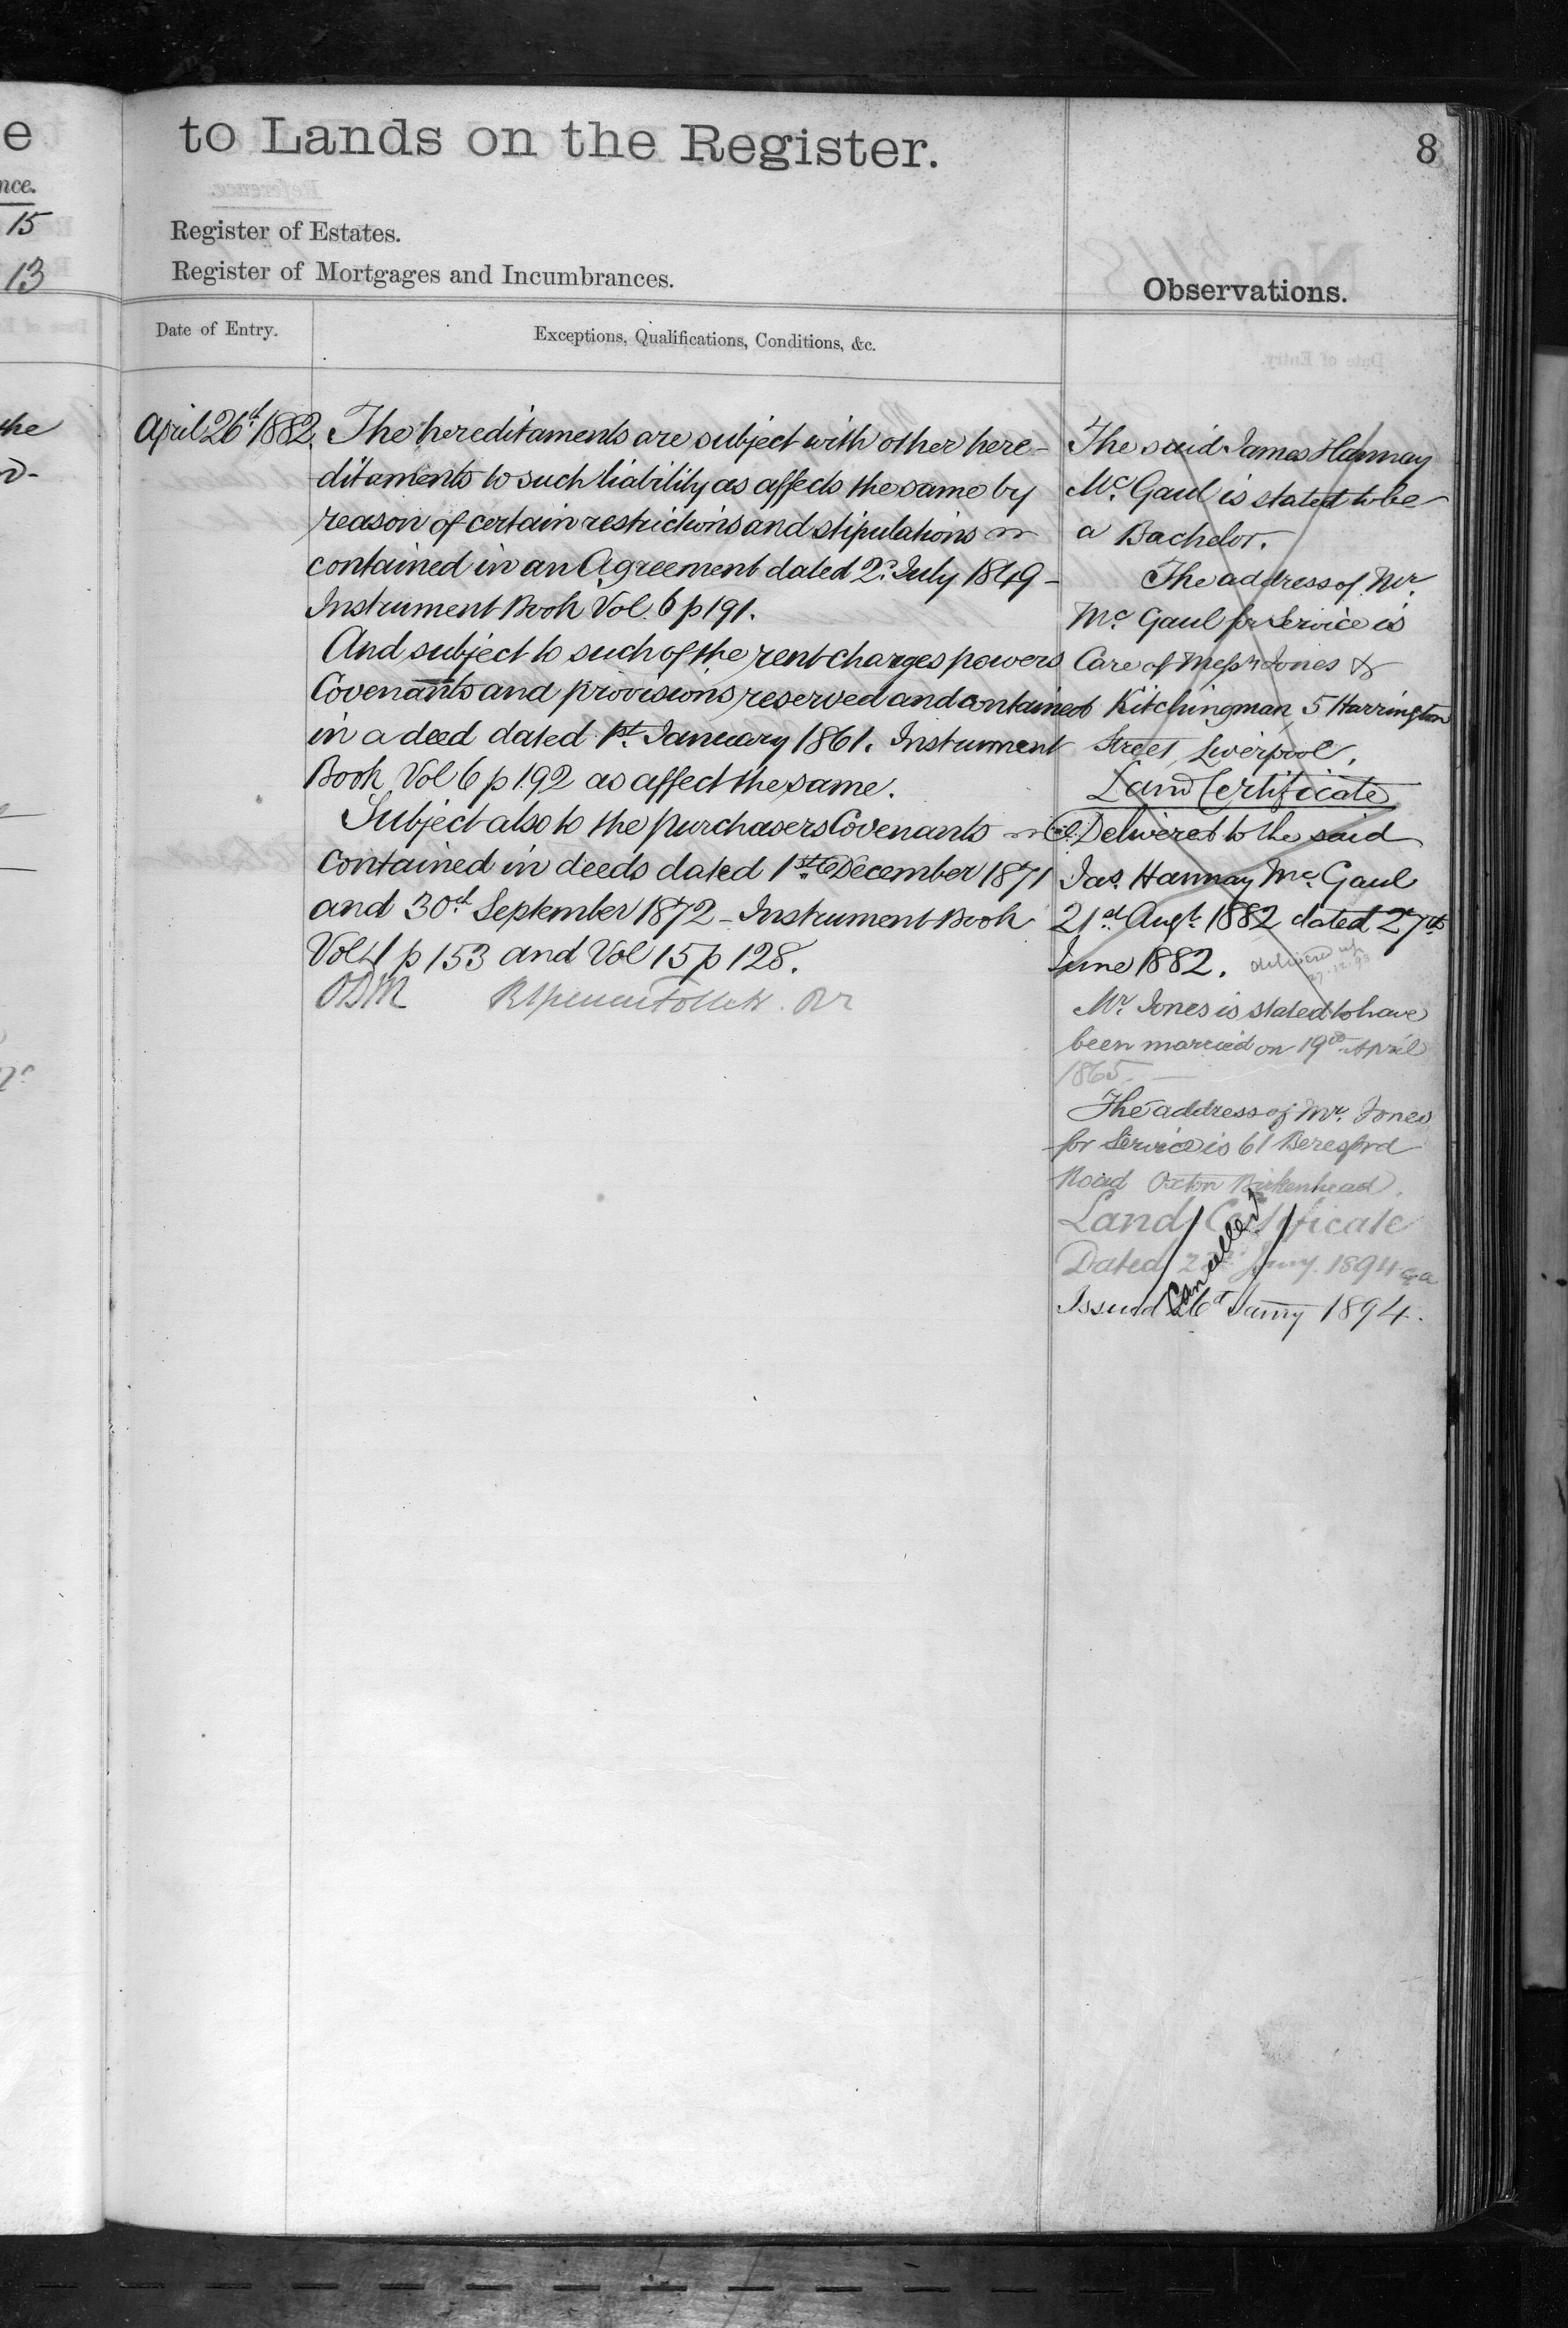 e
nce.
15
13
the
to Lands on the Register.
8
Register of Estates.
Register of Mortgages and Incumbrances.
Observations.
Date of Entry.
Exceptions, Qualifications, Conditions, &c.
April 26th 1882.
The hereditaments are subject with other here-
ditaments to such liability as affects the same by
reason of certain restrictions and stipulations
contained in an Agreement dated 2d. July 1849 -
Instrument Book Vol. 6 p 191.
And subject to such of the rent charges powers
Covenants and provisions reserved and contained
in a deed dated 1st. January 1861. Instrument
Book Vol 6 p 192 as affect the same.
Subject also to the purchasers Covenants
contained in deeds dated 1st December 1871
and 30th September 1872 - Instrument Book
Vol 4 p 153 and Vol 15 p 128.
ODM
The said James Hannay
Mc. Gaul is stated to be
a Bachelor.
The address of Mr.
Mc Gaul for Service is
Care of Messrs Jones &
Kitchingman 5 Harrington
Street, Liverpool.
Land Certificate
Delivered to the said
Jas. Hannay Mc. Gaul
21st. Augt. 1882 dated 27th
June 1882.
delivered up
27.12.93
Mr. Jones is stated to have
been married on 19th April
1865. —
The address of Mr. Jones
for Service is 61 Beresford
Road Oxton Birkenhead.
Land Certificate
Dated Jany. 1894
Cancelled
Issued 26th Jany 1894.